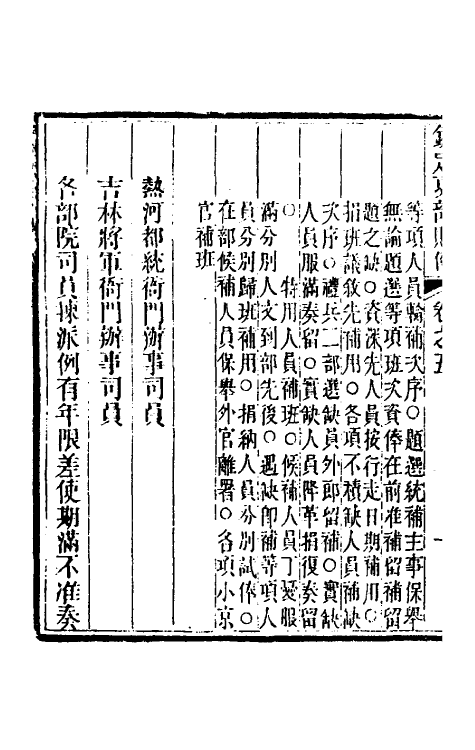 欽定吏部則例 卷之五 一
等項人員輪補次序○題選統補主事保舉
無論題選等項班次資俸在前准補留補留
題之缺○資深先人員按行走日期補用○
捐班議敘先補用○各項不積缺人員補缺
次序○禮兵二部選缺員外郎留補○實缺
人員服滿奏留○實缺人員降革捐復奏留
○特用人員補班○候補人員丁憂服
滿分別人文到部先後○遇缺卽補等項人
員分別歸班補用○捐納人員分別試俸○
在部候補人員保舉外官離署○各項小京
官補班
熱河都統衙門辦事司員
吉林將軍衙門辦事司員
各部院司員揀派例有年限差使期滿不准奏